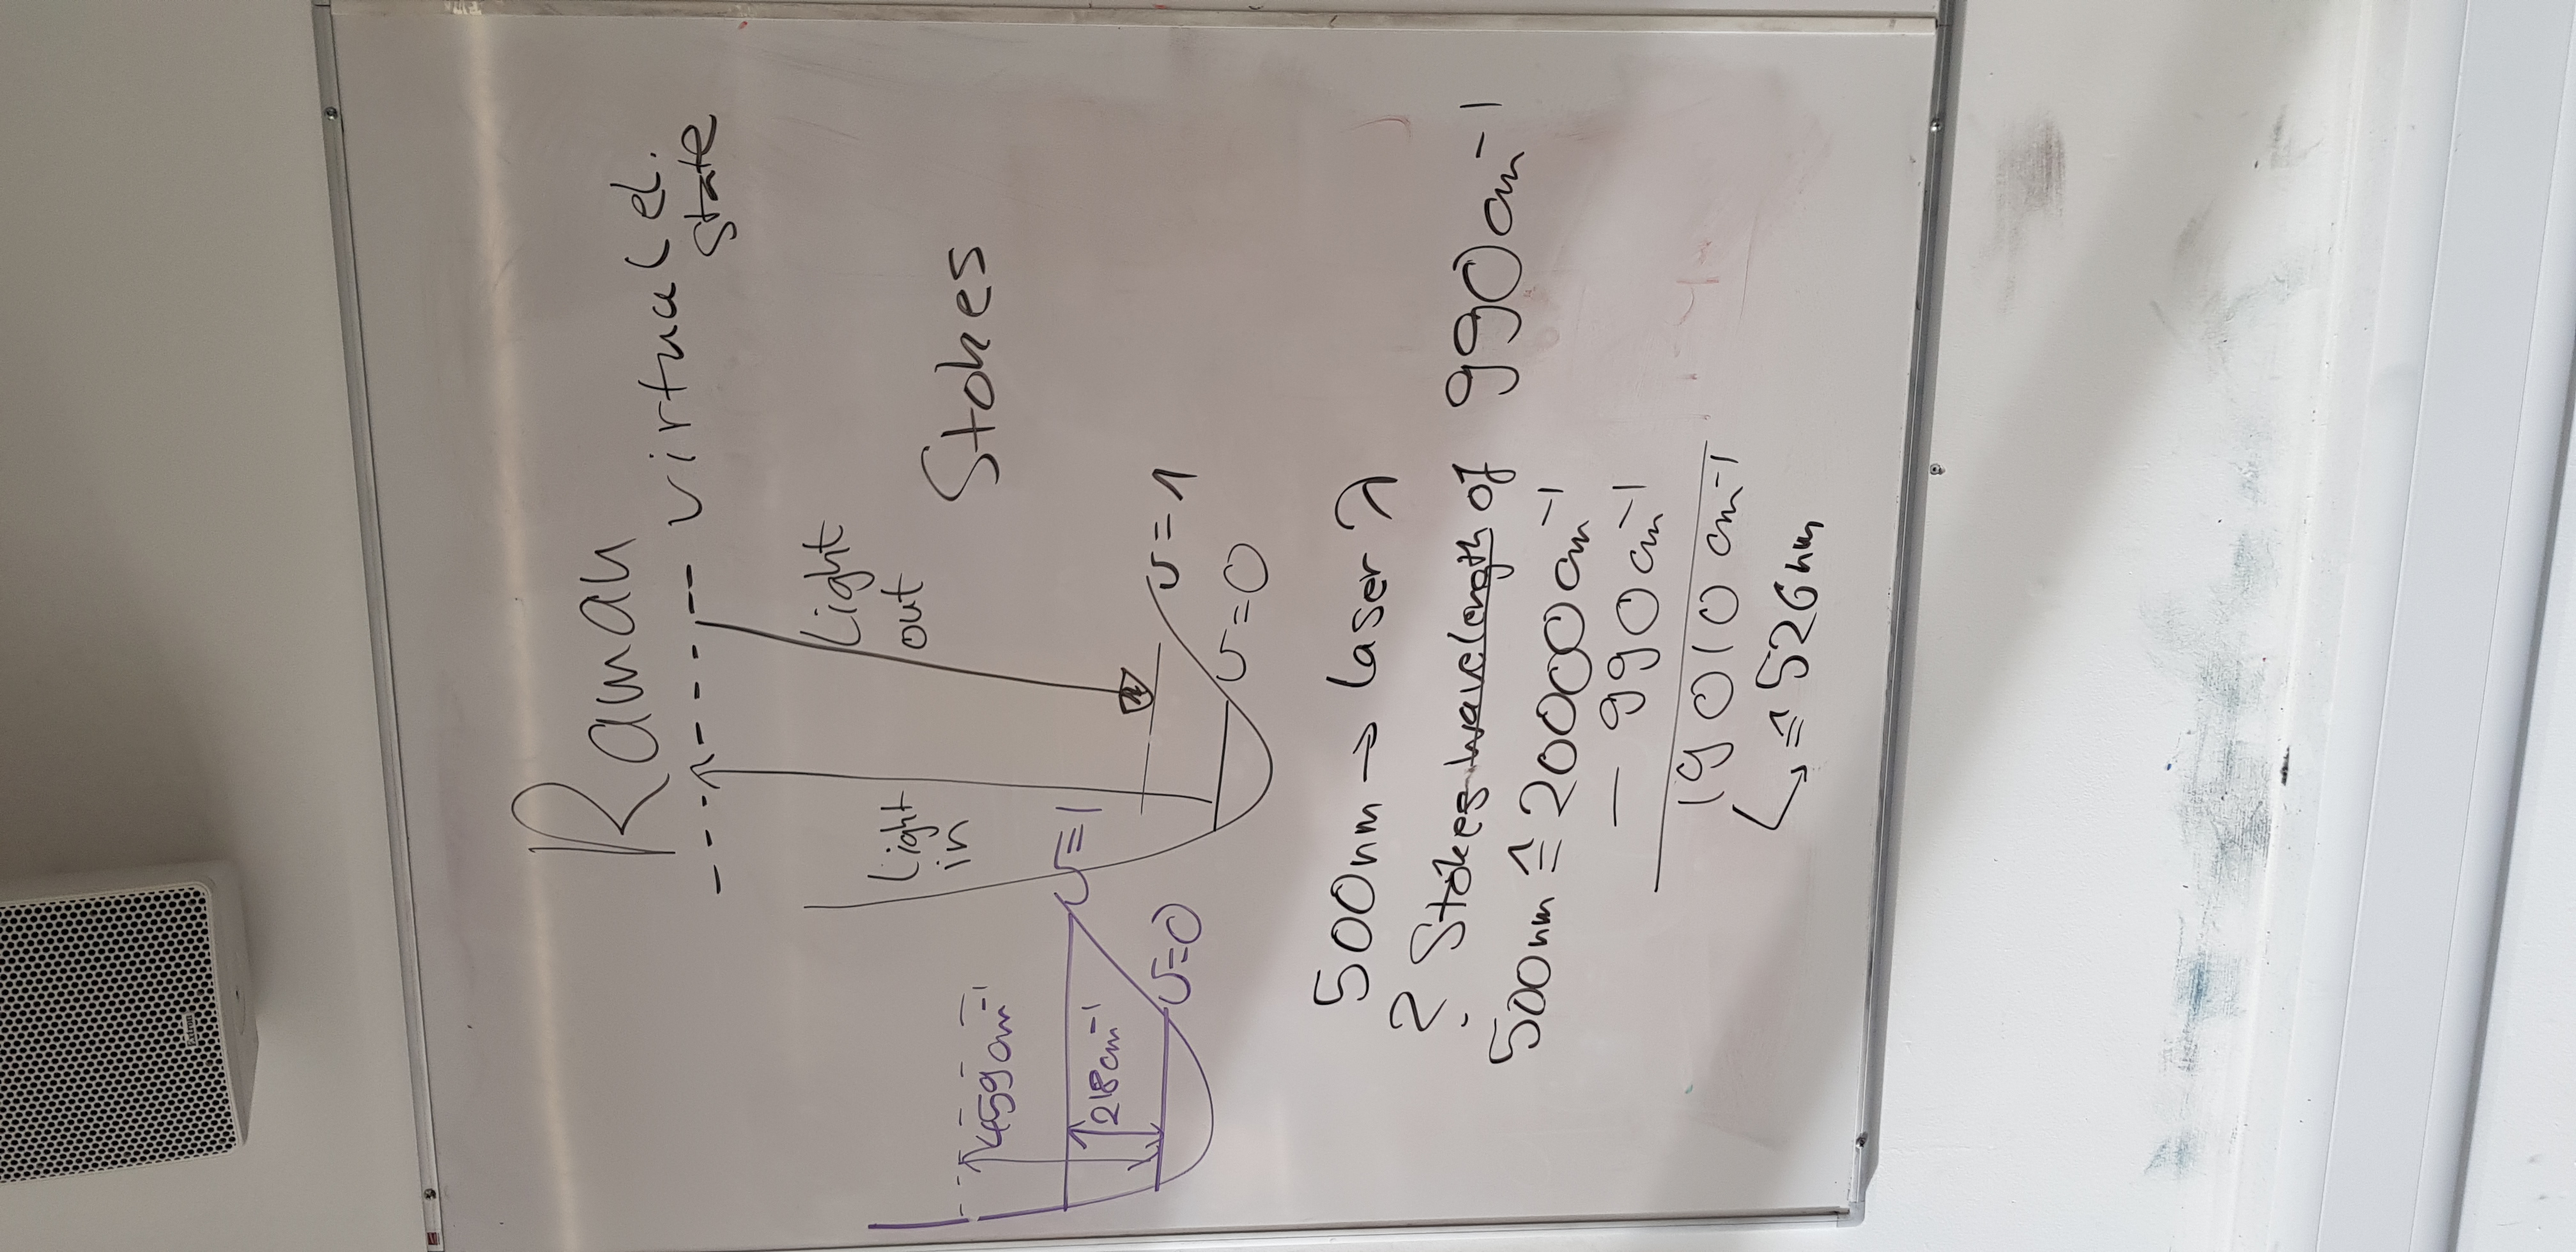 Raman
virtual el.
state
Light
in
Light
out
Stokes
υ=1
υ=0
459cm⁻¹
218cm⁻¹
υ=1
υ=0
500nm → laser λ
? Stokes wavelength of 990cm⁻¹
500nm ≙ 20000cm⁻¹
— 990cm⁻¹
19010cm⁻¹
↳ ≙ 526nm
Extron